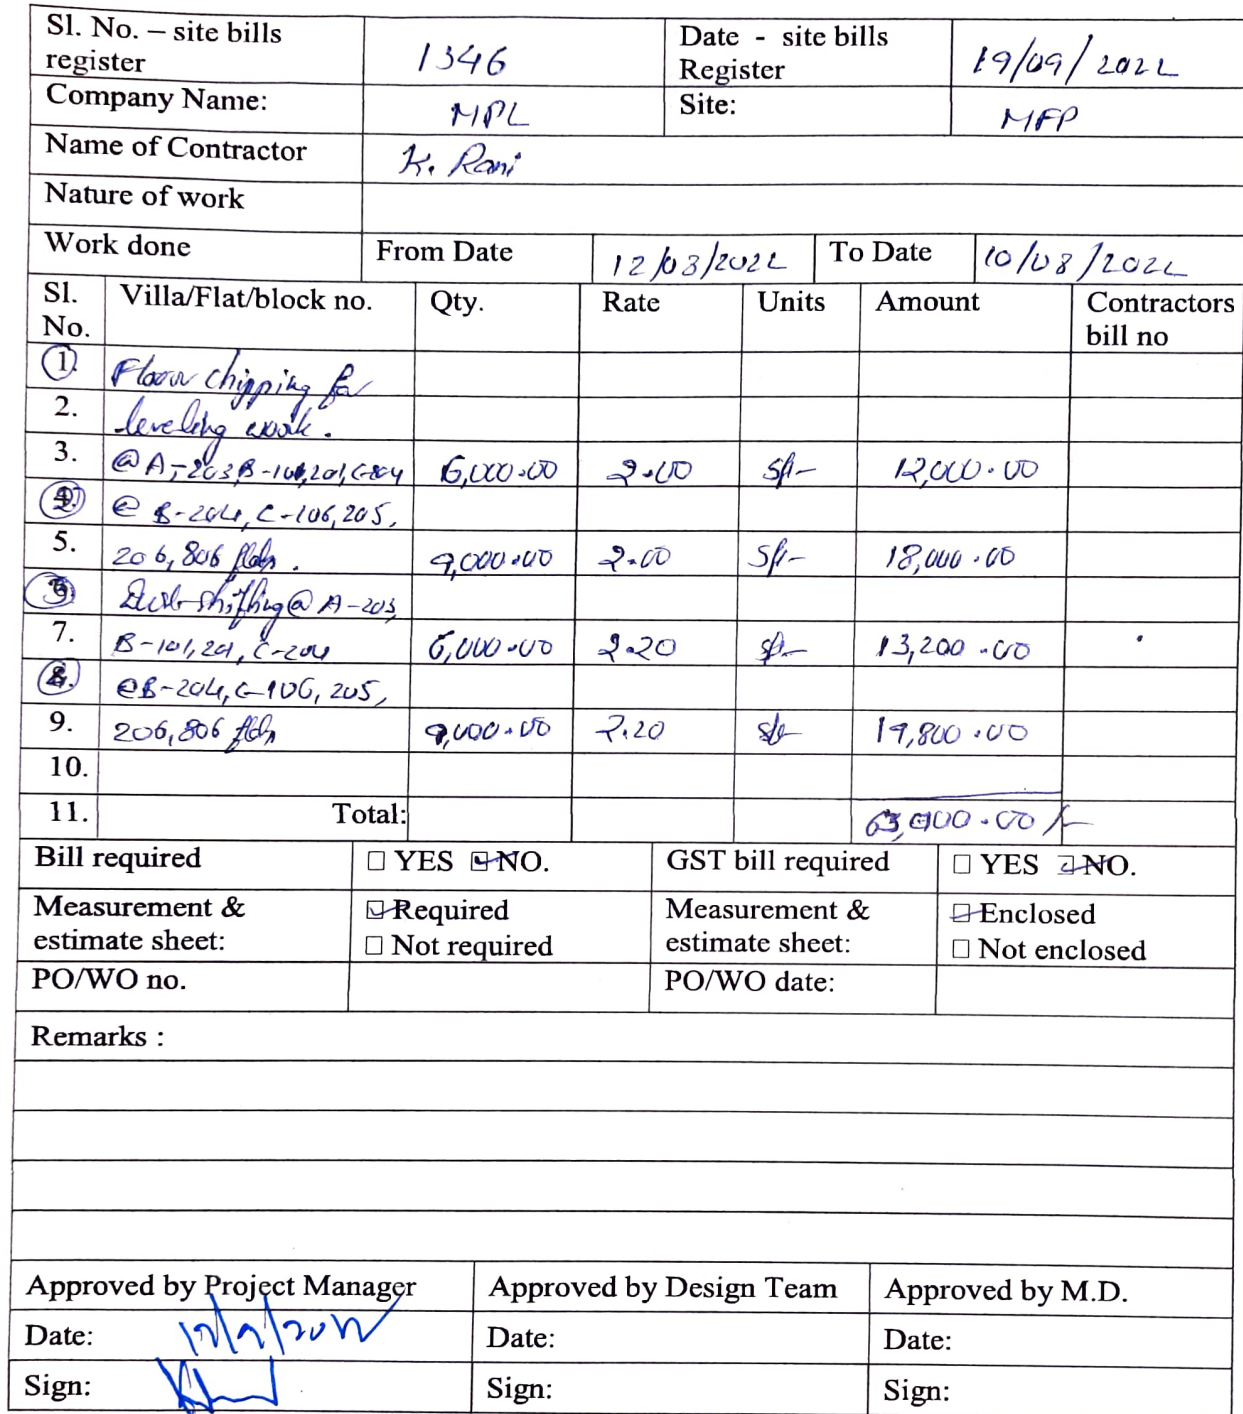 Sl. No. – site bills register 1346 Date - site bills Register 19/09/2022
Company Name: MPL Site: MFP
Name of Contractor K. Rani
Nature of work
Work done From Date 12/03/2022 To Date 10/08/2022
Sl. No. Villa/Flat/block no. Qty. Rate Units Amount Contractors bill no
1. Floor chipping for
2. leveling work.
3. @ A-203, B-101, 201, C-204 6,000.00 2.00 Sft 12,000.00
@ B-204, C-106, 205,
5. 206, 806 flats. 9,000.00 2.00 Sft 18,000.00
shifting @ A-203,
7. B-101, 201, C-204 6,000.00 2.20 sft 13,200.00
@ B-204, C-106, 205,
9. 206, 806 flats 9,000.00 2.20 sft 19,800.00
10.
11. Total: 63,000.00/-
Bill required □ YES ☑ NO. GST bill required □ YES ☑ NO.
Measurement & estimate sheet: ☑ Required □ Not required Measurement & estimate sheet: ☑ Enclosed □ Not enclosed
PO/WO no. PO/WO date:
Remarks :
Approved by Project Manager Approved by Design Team Approved by M.D.
Date: Date: Date:
Sign: Sign: Sign: